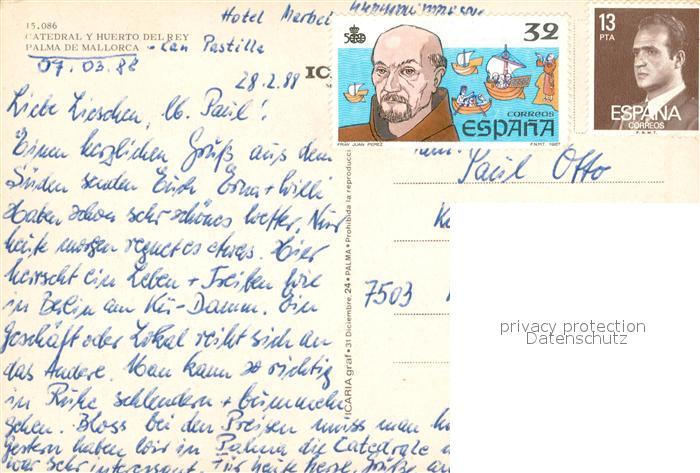 Hotel
15.086
CATEDRAL Y HUERTO DEL REY
PALMA DE MALLORCA - Can Pastilla
07.03.88
28.2.88
Liebe Lieschen, lb. Paul!
Einen herzlichen Gruß aus dem
Süden senden Euch Erna + Willi
Haben schon sehr schönes Wetter. Nur
heute morgen regnet es etwas. Hier
herrscht ein Leben + Treiben wie
in Berlin am Kü-Damm. Ein
Geschäft oder Lokal reiht sich an
das Andere. Man kann so richtig
in Ruhe schlendern + bummeln
gehen. Bloss bei den Preisen muss man
Gestern haben wir in Palma die Catedrale
war sehr interessant. Für heute herzl. Grüße
ICARIA graf • 31 Diciembre, 24 • PALMA • Prohibida la reproducci
32
500
CORREOS
ESPAÑA
FRAY JUAN PEREZ
F.N.M.T. 1987
13
PTA
ESPAÑA
CORREOS
F.N.M.T.
Paul Otto
7503
privacy protection
Datenschutz